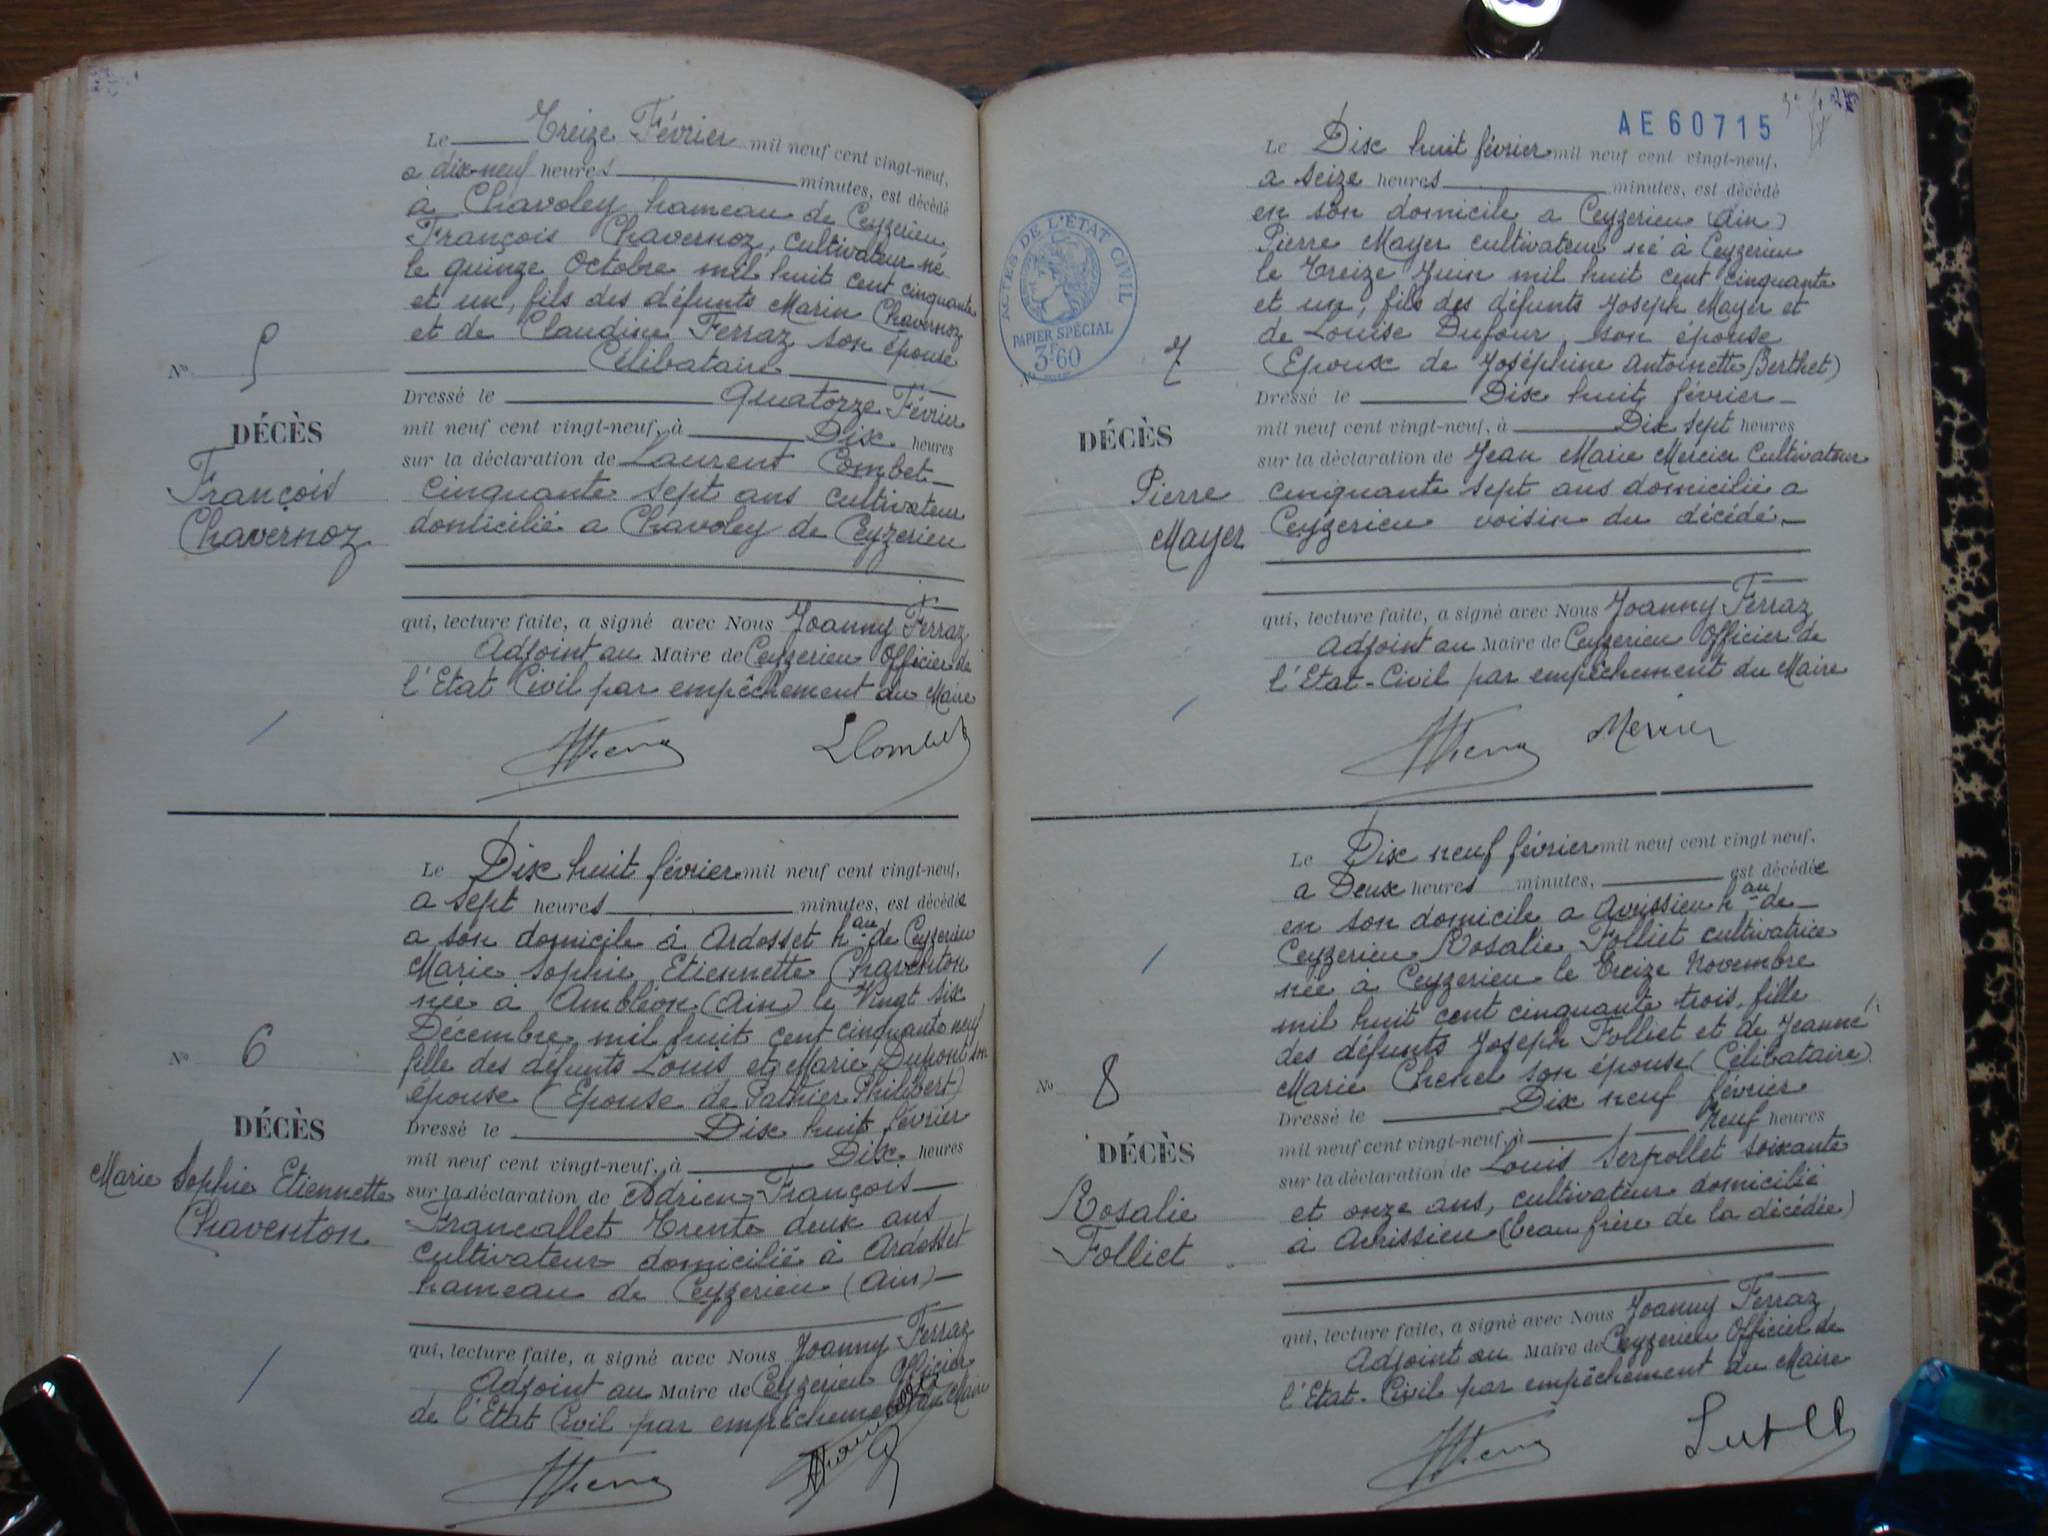 Le Treize Février mil neuf cent vingt-neuf,
a dix neuf heures minutes, est décédé
à Chavoley hameau de Ceyzerieu
François Chavernoz, cultivateur né
le quinze Octobre mil huit cent cinquante
et un, fils des défunts Marin Chavernoz
et de Claudine Ferraz son épouse
Célibataire
No 5
Dressé le Quatorze Février
DÉCÈS
mil neuf cent vingt-neuf, à Dix heures
sur la déclaration de Laurent Combet
François
Chavernoz
cinquante sept ans cultivateur
domicilié a Chavoley de Ceyzerieu
qui, lecture faite, a signé avec Nous Joanny Ferraz
Adjoint au Maire de Ceyzerieu Officier de
l'Etat Civil par empêchement du Maire
LCombet
Le Dix huit février mil neuf cent vingt-neuf,
a sept heures minutes, est décédée
a son domicile à Ardosset hau de Ceyzerieu
Marie Sophie Etiennette Chaventon
née à Ambléon (Ain) le Vingt six
Décembre mil huit cent cinquante neuf
fille des défunts Louis et Marie Dupont son
épouse (Epouse de Pathier Philibert)
No 6
Dressé le Dix huit février
DÉCÈS
mil neuf cent vingt-neuf, à Dix heures
Marie Sophie Etiennette
Chaventon
sur la déclaration de Adrien François
Francallet Trente deux ans
cultivateur domicilié à Ardosset
hameau de Ceyzerieu (Ain)
qui, lecture faite, a signé avec Nous Joanny Ferraz
Adjoint au Maire de Ceyzerieu Officier
de l'Etat Civil par empêchement du Maire
AE60715
Le Dix huit février mil neuf cent vingt-neuf,
a seize heures minutes, est décédé
en son domicile a Ceyzerieu (Ain)
Pierre Mayer cultivateur né à Ceyzerieu
le Treize Juin mil huit cent cinquante
et un, fils des défunts Joseph Mayer et
de Louise Dufour, son épouse
(Epoux de Joséphine Antoinette Berthet)
ACTES DE L'ÉTAT CIVIL
PAPIER SPÉCIAL
3F60
No 7
Dressé le Dix huit février
DÉCÈS
mil neuf cent vingt-neuf, à Dix sept heures
sur la déclaration de Jean Marie Mercier Cultivateur
Pierre
Mayer
cinquante sept ans domicilié a
Ceyzerieu voisin du décédé
qui, lecture faite, a signé avec Nous Joanny Ferraz
Adjoint au Maire de Ceyzerieu Officier de
l'Etat-Civil par empêchement du Maire
Mercier
Le Dix neuf février mil neuf cent vingt-neuf,
a Deux heures minutes, est décédée
en son domicile a Avrissieu hau de
Ceyzerieu Rosalie Folliet cultivatrice
née à Ceyzerieu le Treize Novembre
mil huit cent cinquante trois, fille
des défunts Joseph Folliet et de Jeanne
Marie son épouse (Célibataire)
No 8
Dressé le Dix neuf février
DÉCÈS
mil neuf cent vingt-neuf, à Neuf heures
Rosalie
Folliet
sur la déclaration de Louis Serpollet soixante
et onze ans, cultivateur domicilié
à Avrissieu (beau frère de la décédée)
qui, lecture faite, a signé avec Nous Joanny Ferraz
Adjoint au Maire de Ceyzerieu Officier de
l'Etat-Civil par empêchement du Maire